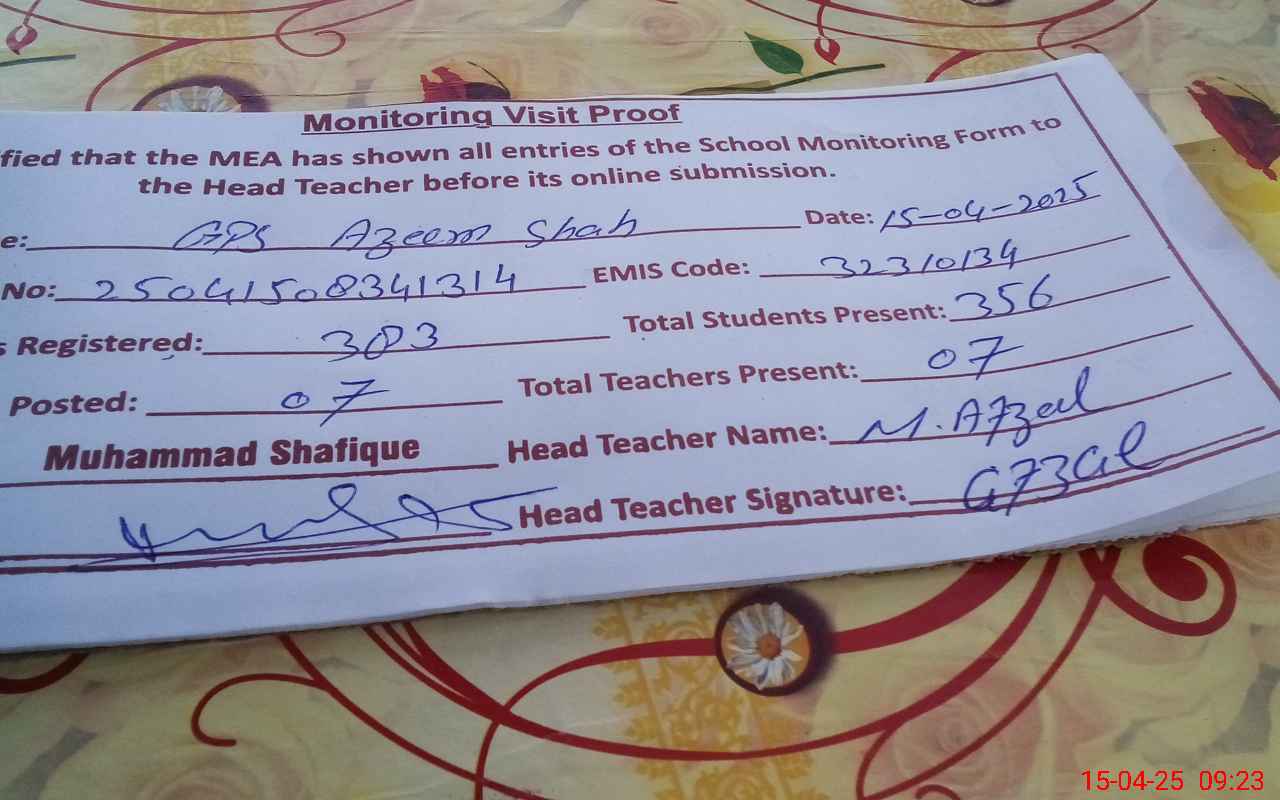 Monitoring Visit Proof
fied that the MEA has shown all entries of the School Monitoring Form to
the Head Teacher before its online submission.
e: GPS Azeem Shah Date: 15-04-2025
No: 25041508341314 EMIS Code: 32310134
s Registered: 383 Total Students Present: 356
Posted: 07 Total Teachers Present: 07
Muhammad Shafique Head Teacher Name: M. Afzal
Head Teacher Signature: afzal
15-04-25 09:23